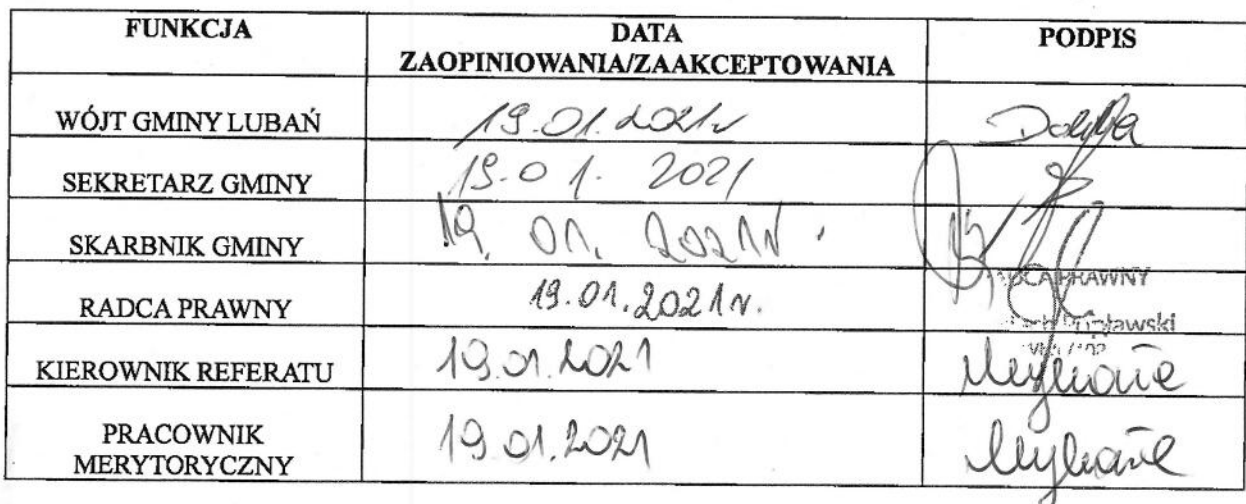 FUNKCJA
DATA
ZAOPINIOWANIA/ZAAKCEPTOWANIA
PODPIS
WÓJT GMINY LUBAŃ
19.01.2021r
SEKRETARZ GMINY
19.01.2021
SKARBNIK GMINY
19.01.2021r.
RADCA PRAWNY
19.01.2021r.
RADCA PRAWNY
KIEROWNIK REFERATU
19.01.2021
PRACOWNIK
MERYTORYCZNY
19.01.2021